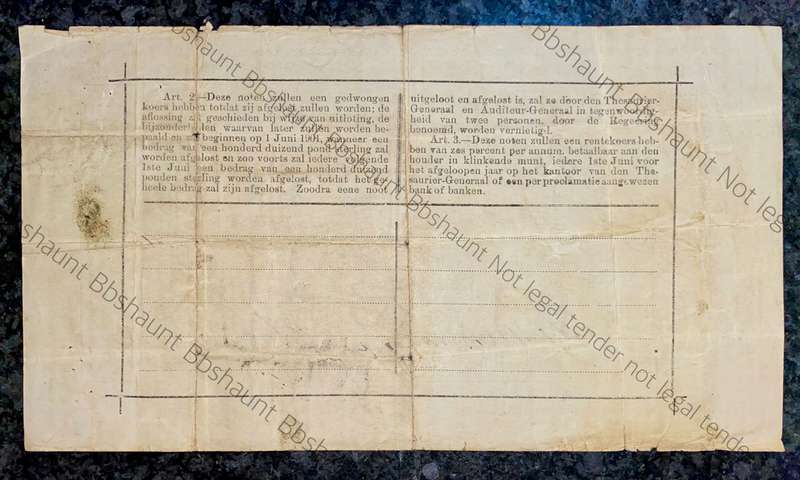 Art. 2.—Deze noten zullen een gedwongen
koers hebben totdat zij afgelost zullen worden; de
aflossing zal geschieden bij wijze van uitloting, de
bijzonderheden waarvan later zullen worden be-
paald en te beginnen op 1 Juni 1901, wanneer een
bedrag van een honderd duizend pond sterling zal
worden afgelost en zoo voorts zal iedere volgende
1ste Juni een bedrag van een honderd duizend
ponden sterling worden afgelost, totdat het ge-
heele bedrag zal zijn afgelost. Zoodra eene noot
uitgeloot en afgelost is, zal ze door den Thesaurier-
Generaal en Auditeur-Generaal in tegenwoordig-
heid van twee personen, door de Regeering
benoemd, worden vernietigd.
Art. 3.—Deze noten zullen een rentekoers heb-
ben van zes percent per annum, betaalbaar aan den
houder in klinkende munt, iedere 1ste Juni voor
het afgeloopen jaar op het kantoor van den The-
saurier-Generaal of een per proclamatie aangewezen
bank of banken.
Bbshaunt Bbshaunt Bbshaunt Bbshaunt Not legal tender not legal tender
Bbshaunt Not legal
shaunt Bbshaunt Bbshaunt Bbsh